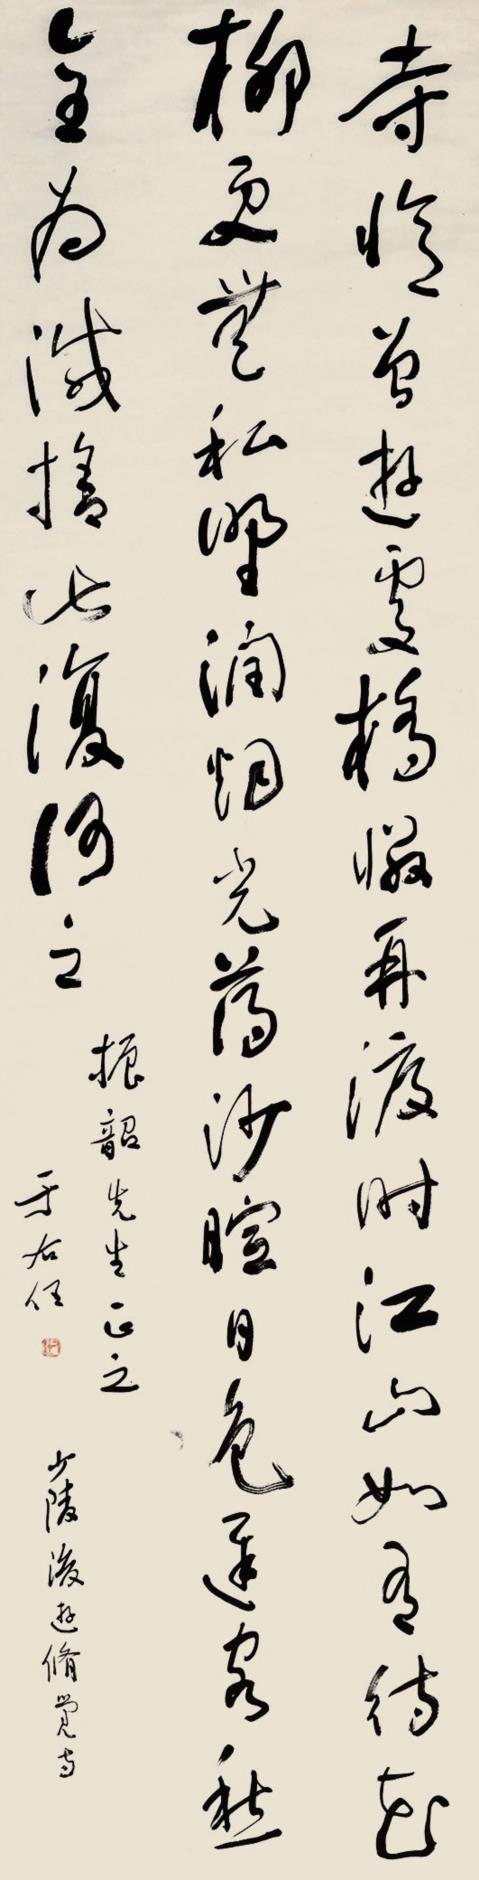 寺憶曾遊處橋憐再渡時江山如有待花
柳更無私野潤烟光薄沙暄日色遲客愁
全為減捨此復何之
振韶先生正之
于右任
少陵後遊脩覺寺